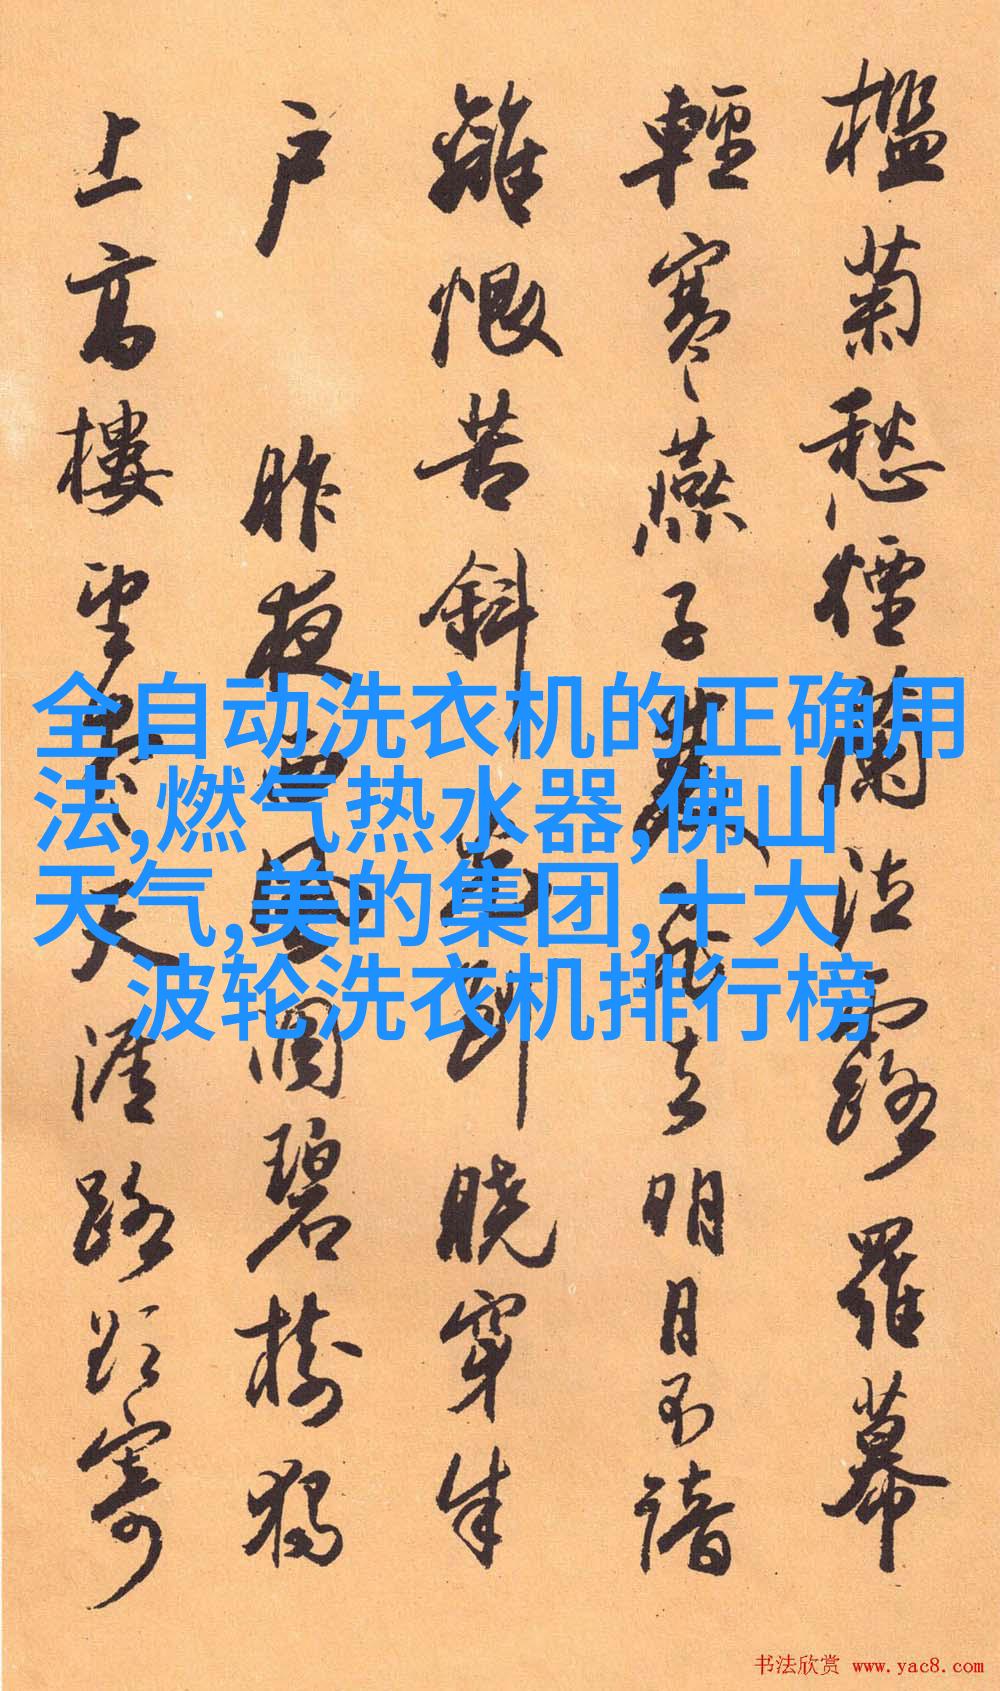 檻菊愁煙蘭泣露羅幕
輕寒燕子雙飛去明月不諳
離恨苦斜光到曉穿朱
户 昨夜西風凋碧樹獨
上高樓望盡天涯路欲寄
全自动洗衣机的正确用
法,燃气热水器,佛山
天气,美的集团,十大
波轮洗衣机排行榜
书法欣赏 www.yac8.com